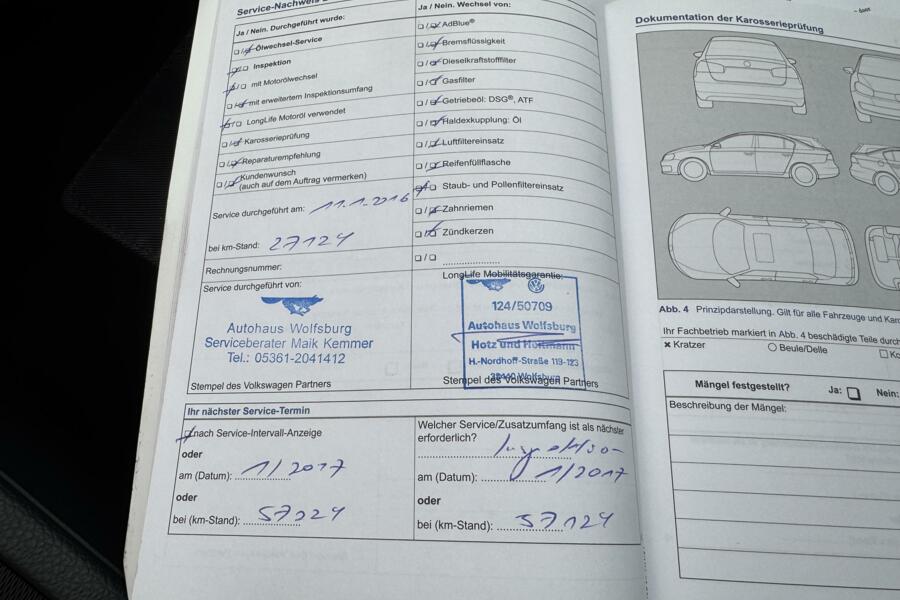 Service-Nachweis
Ja / Nein. Durchgeführt wurde:
Ölwechsel-Service
Inspektion
mit Motorölwechsel
mit erweitertem Inspektionsumfang
LongLife Motoröl verwendet
Karosserieprüfung
Reparaturempfehlung
Kundenwunsch
(auch auf dem Auftrag vermerken)
Service durchgeführt am: 11.1.2016
bei km-Stand: 27124
Rechnungsnummer:
Service durchgeführt von:
Autohaus Wolfsburg
Serviceberater Maik Kemmer
Tel.: 05361-2041412
Stempel des Volkswagen Partners
Ja / Nein. Wechsel von:
AdBlue®
Bremsflüssigkeit
Dieselkraftstofffilter
Gasfilter
Getriebeöl: DSG®, ATF
Haldexkupplung: Öl
Luftfiltereinsatz
Reifenfüllflasche
Staub- und Pollenfiltereinsatz
Zahnriemen
Zündkerzen
LongLife Mobilitätsgarantie:
124/50709
Autohaus Wolfsburg
Hotz und Heitmann
H.-Nordhoff-Straße 119-123
Wolfsburg
Stempel des Volkswagen Partners
Ihr nächster Service-Termin
nach Service-Intervall-Anzeige
oder
am (Datum): 1/2017
oder
bei (km-Stand): 57124
Welcher Service/Zusatzumfang ist als nächster
erforderlich?
Inspektion
am (Datum): 1/2017
oder
bei (km-Stand): 57124
Dokumentation der Karosserieprüfung
Abb. 4 Prinzipdarstellung. Gilt für alle Fahrzeuge und
Ihr Fachbetrieb markiert in Abb. 4 beschädigte Teile
Kratzer
Beule/Delle
Mängel festgestellt? Ja: Nein:
Beschreibung der Mängel: